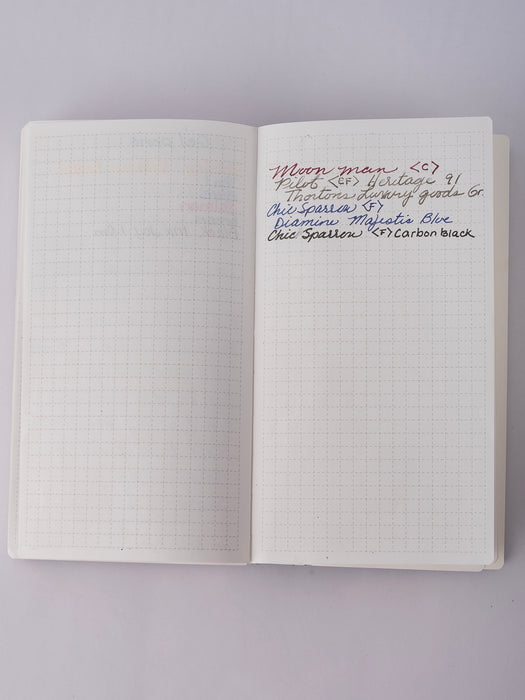 Moon man <C>
Pilot <EF> Heritage 91
Thortons Luxury goods Gr.
Chic Sparrow <F>
Diamine Majestic Blue
Chic Sparrow <F> Carbon black